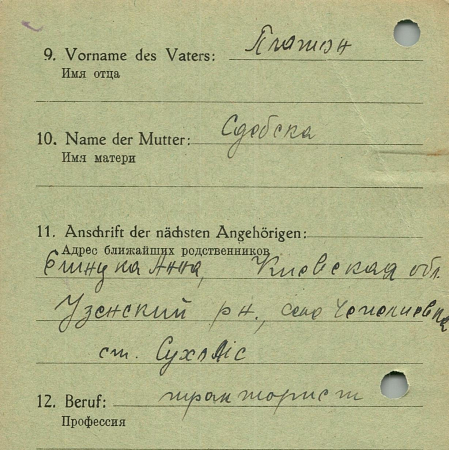 9. Vorname des Vaters: Платон
Имя отца
10. Name der Mutter: Сдобска
Имя матери
11. Anschrift der nächsten Angehörigen:
Адрес ближайших родственников
Анна, Киевская обл.
Узенский рн., село
ст.
12. Beruf: тракторист
Профессия